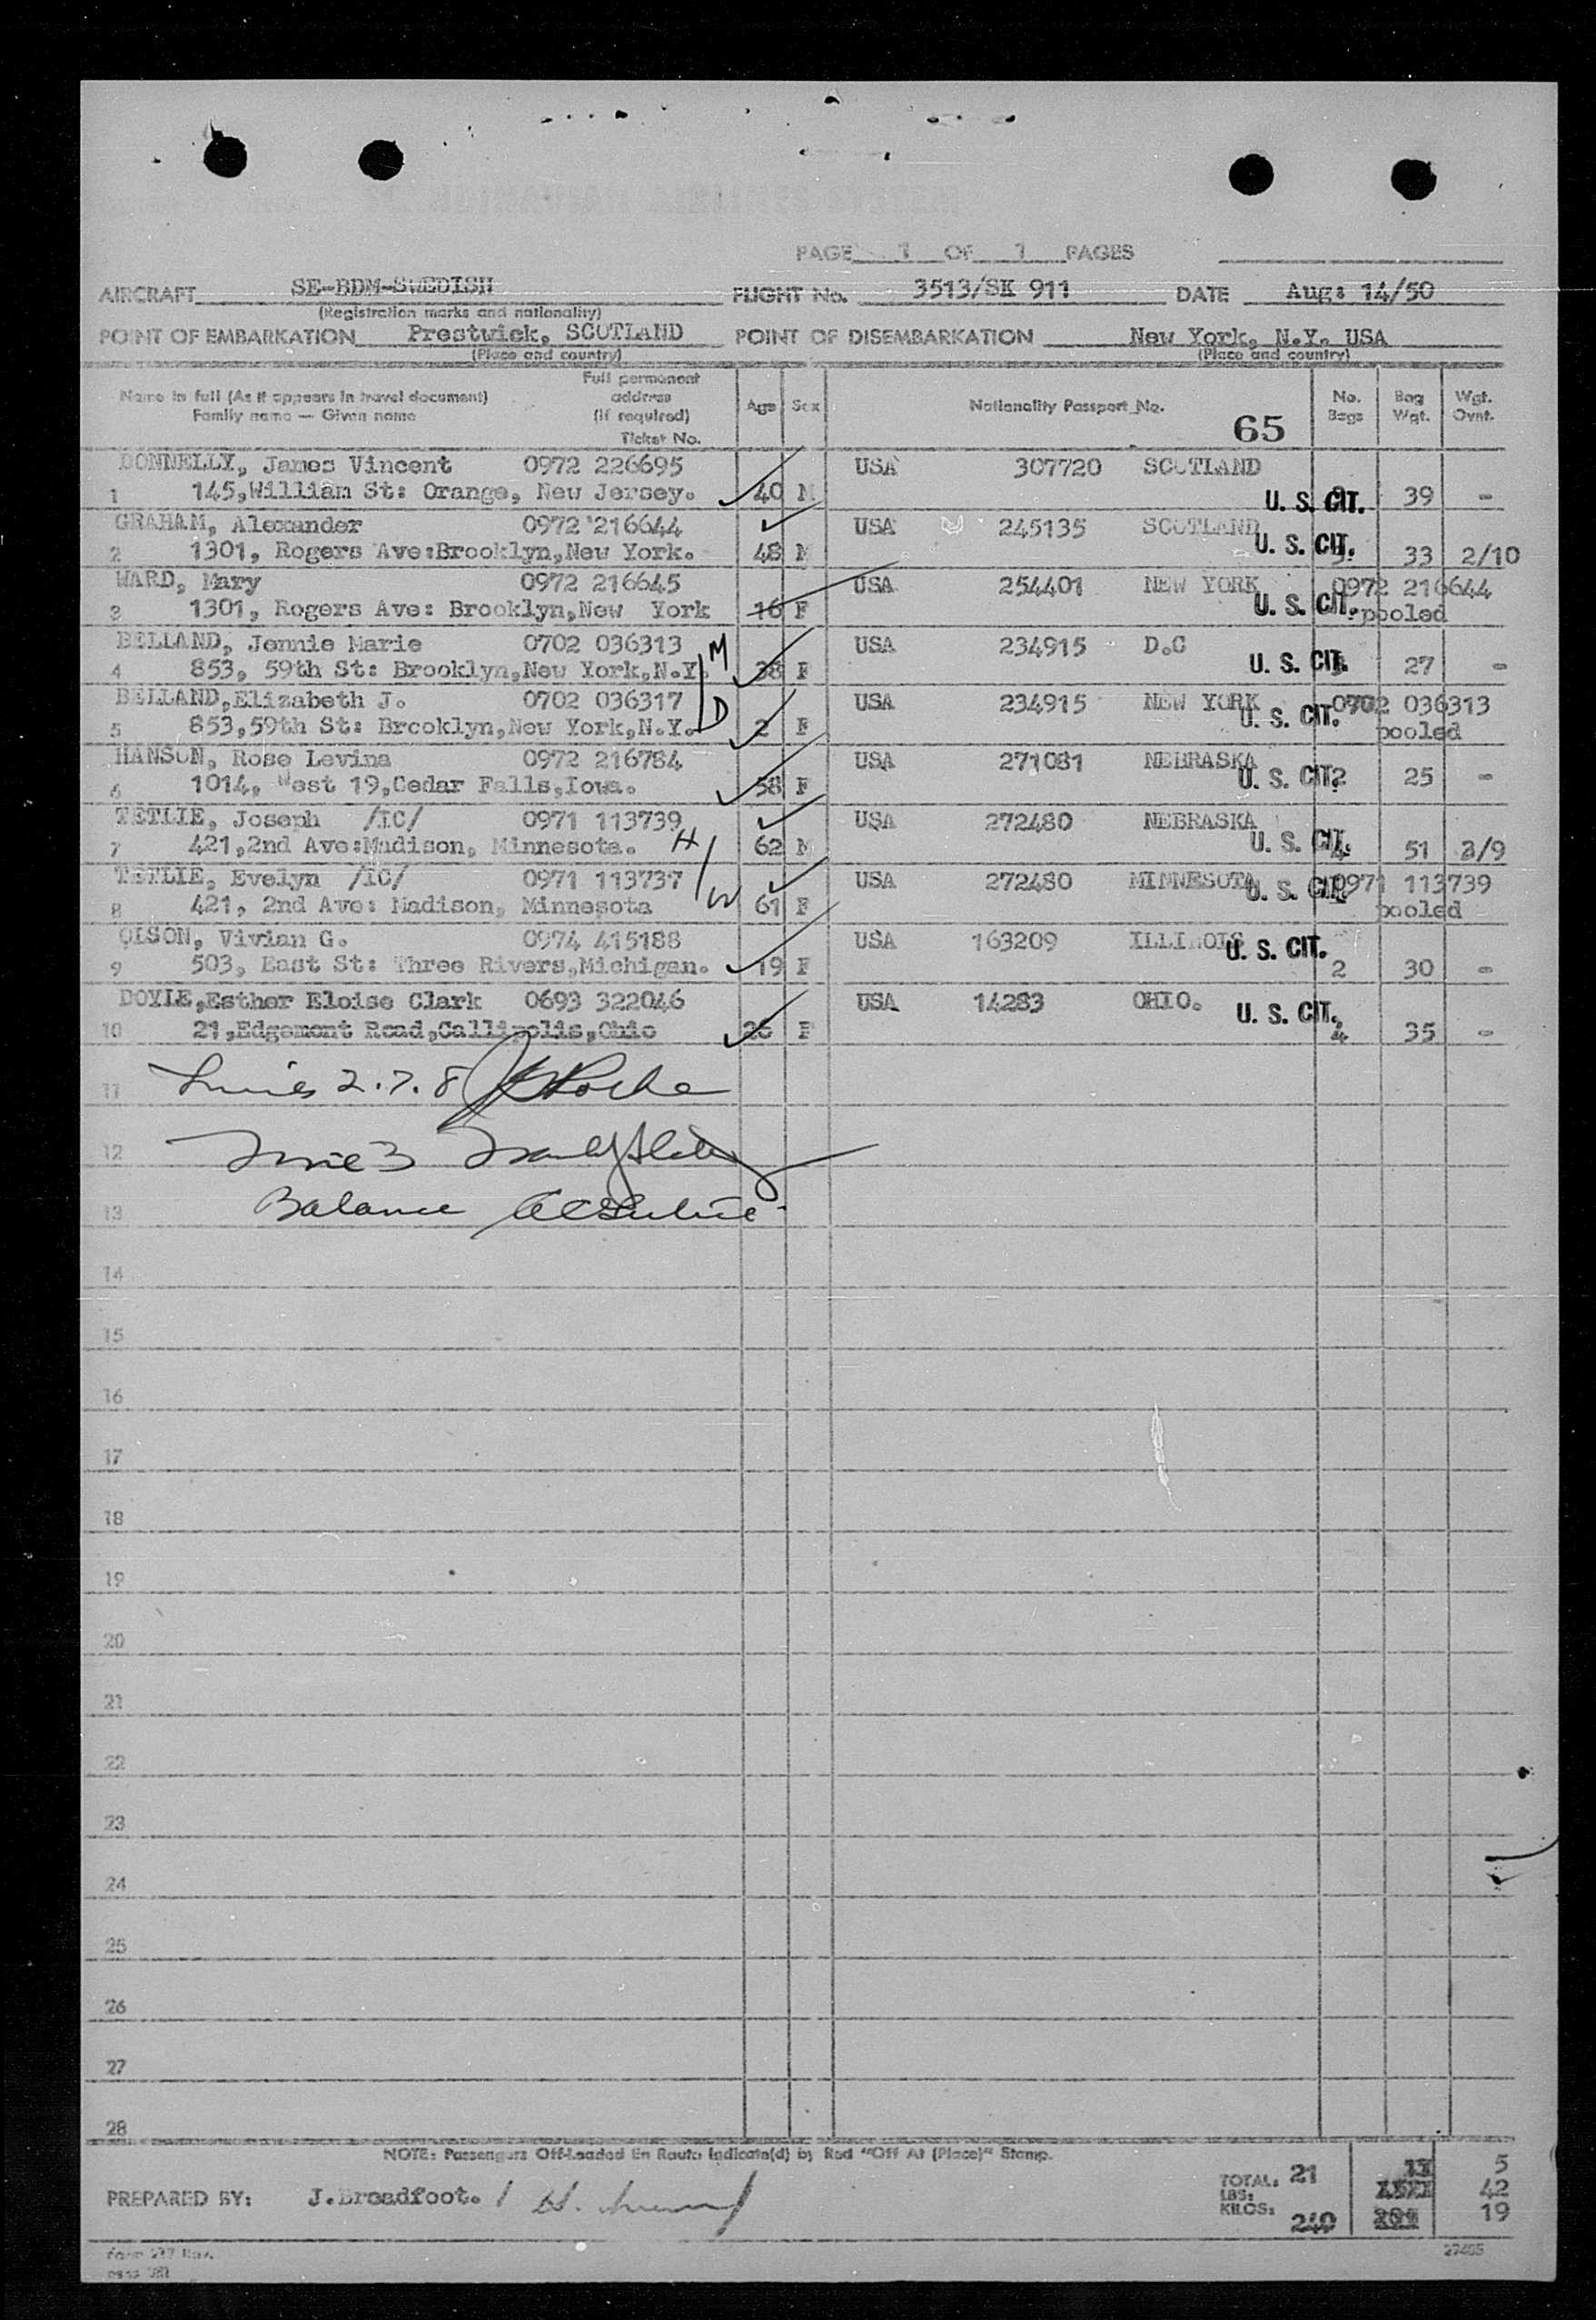 PAGE 1 OF 1 PAGES
AIRCRAFT SE-BDM-SWEDISH FLIGHT No. 3513/SK 911 DATE Aug: 14/50
(Registration marks and nationality)
POINT OF EMBARKATION Prestwick, SCOTLAND POINT OF DISEMBARKATION New York, N.Y. USA
(Place and country) (Place and country)
Name in full (As it appears in travel document) Family name — Given name Full permanent address (if required) Ticket No. Age Sex Nationality Passport No. 65 No. Bags Bag Wgt. Wgt. Ovnt.
DONNELLY, James Vincent 0972 226695 USA 307720 SCOTLAND
1 145,William St: Orange, New Jersey. 40 M U. S. CIT. 39 -
GRAHAM, Alexander 0972 216644 USA 245135 SCOTLAND
2 1301, Rogers Ave:Brooklyn,New York. 48 M U. S. CIT. 33 2/10
WARD, Mary 0972 216645 USA 254401 NEW YORK 0972 216644
3 1301, Rogers Ave: Brooklyn,New York 16 F U. S. CIT. pooled
BELLAND, Jennie Marie 0702 036313 M USA 234915 D.C
4 853, 59th St: Brooklyn,New York,N.Y. 38 F U. S. CIT. 27 -
BELLAND,Elizabeth J. 0702 036317 D USA 234915 NEW YORK 0702 036313
5 853,59th St: Brooklyn,New York,N.Y. 2 F U. S. CIT. pooled
HANSON, Rose Levina 0972 216784 USA 271081 NEBRASKA
6 1014, West 19,Cedar Falls,Iowa. 58 F U. S. CIT. 2 25 -
TETLIE, Joseph /IC/ 0971 113739 USA 272480 NEBRASKA
7 421,2nd Ave:Madison, Minnesota. H 62 M U. S. CIT. 4 51 3/9
TETLIE, Evelyn /IC/ 0971 113737 USA 272480 MINNESOTA 0971 113739
8 421, 2nd Ave: Madison, Minnesota W 61 F U. S. CIT. pooled
OLSON, Vivian G. 0974 415188 USA 163209 ILLINOIS
9 503, East St: Three Rivers,Michigan. 19 F U. S. CIT. 2 30 -
DOYLE,Esther Eloise Clark 0693 322046 USA 14283 OHIO.
10 21,Edgemont Road,Callipolis,Ohio 26 F U. S. CIT. 4 35 -
11 Lines 2.7.8
12 Line 3
13 Balance
14
15
16
17
18
19
20
21
22
23
24
25
26
27
28
NOTE: Passengers Off-Loaded En Route Indicate(d) by Red "Off At (Place)" Stamp.
PREPARED BY: J.Broadfoot. /
TOTAL: 21 5
LBS: 42
KILOS: 240 19
27405